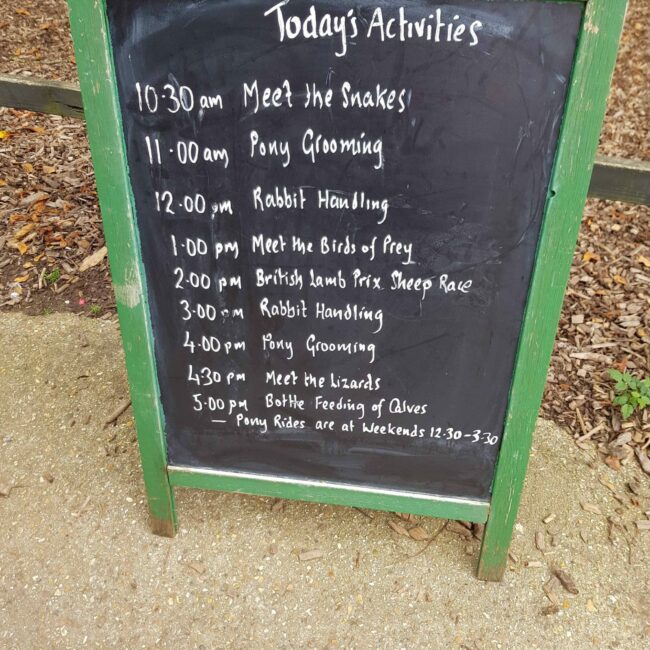 Today's Activities
10.30 am Meet the Snakes
11.00 am Pony Grooming
12.00 pm Rabbit Handling
1.00 pm Meet the Birds of Prey
2.00 pm British Lamb Prix Sheep Race
3.00 pm Rabbit Handling
4.00 pm Pony Grooming
4.30 pm Meet the Lizards
5.00 pm Bottle Feeding of Calves
— Pony Rides are at Weekends 12.30-3.30